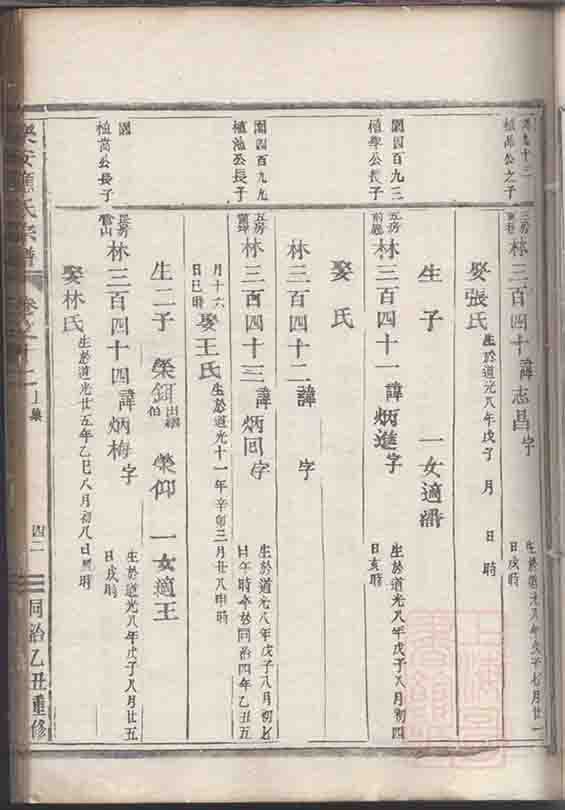 植高公之子
三房
林三百四十諱志昌字
生於道光八年戊子七月廿一
日戌時
娶張氏
生於道光八年戊子 月 日 時
生子 一女適潘
園四百九三
植學公長子
五房
前
林三百四十一諱炳進字
生於道光八年戊子八月初四
日亥時
娶 氏
林三百四十二諱 字
園四百九九
植池公長子
五房
林三百四十三諱炳回字
生於道光八年戊子八月初七
日午時卒於同治四年乙丑五
月十六
日巳時
娶王氏
生於道光十一年辛卯三月廿八申時
生二子 榮鉺 榮仰 一女適王
出紹
伯
園
植嵩公長子
長房
林三百四十四諱炳梅字
生於道光八年戊子八月廿五
日戌時
娶林氏
生於道光廿五年乙巳八月初八日 時
樂安 氏宗譜
卷之
四二
同治乙丑重修